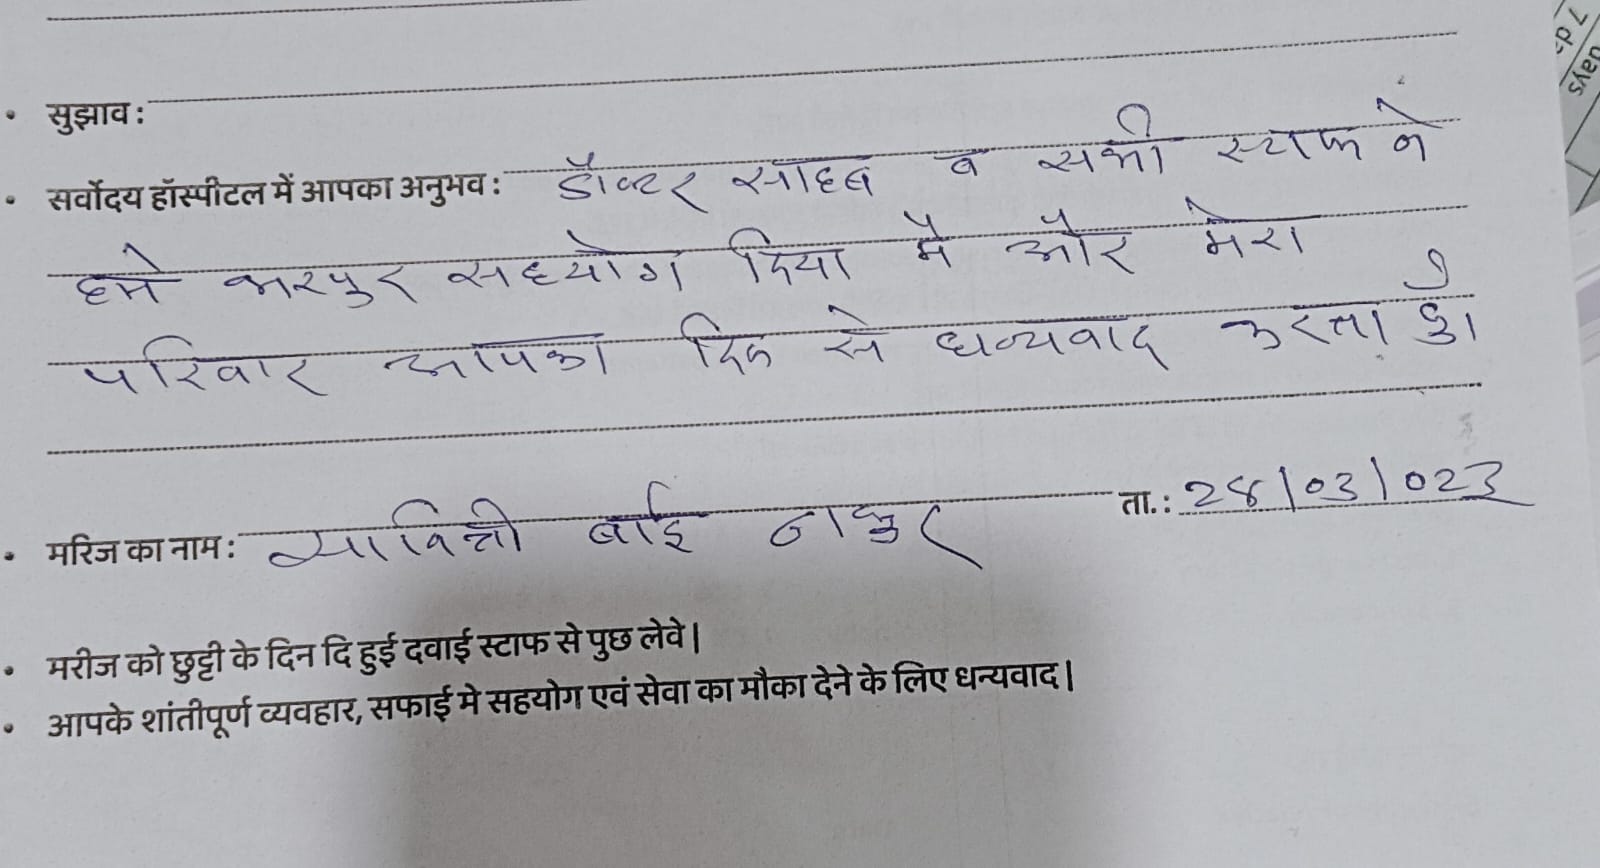 सुझाव :
सर्वोदय हॉस्पीटल में आपका अनुभव : डॉक्टर साहब व सभी स्टाफ ने
हमे भरपुर सहयोग दिया मै और मेरा
परिवार आपका दिल से धन्यवाद करता हुँ।
मरिज का नाम : सावित्री बाई ठाकुर ता. : 28/03/023
मरीज को छुट्टी के दिन दि हुई दवाई स्टाफ से पुछ लेवे |
आपके शांतीपूर्ण व्यवहार, सफाई मे सहयोग एवं सेवा का मौका देने के लिए धन्यवाद |
days